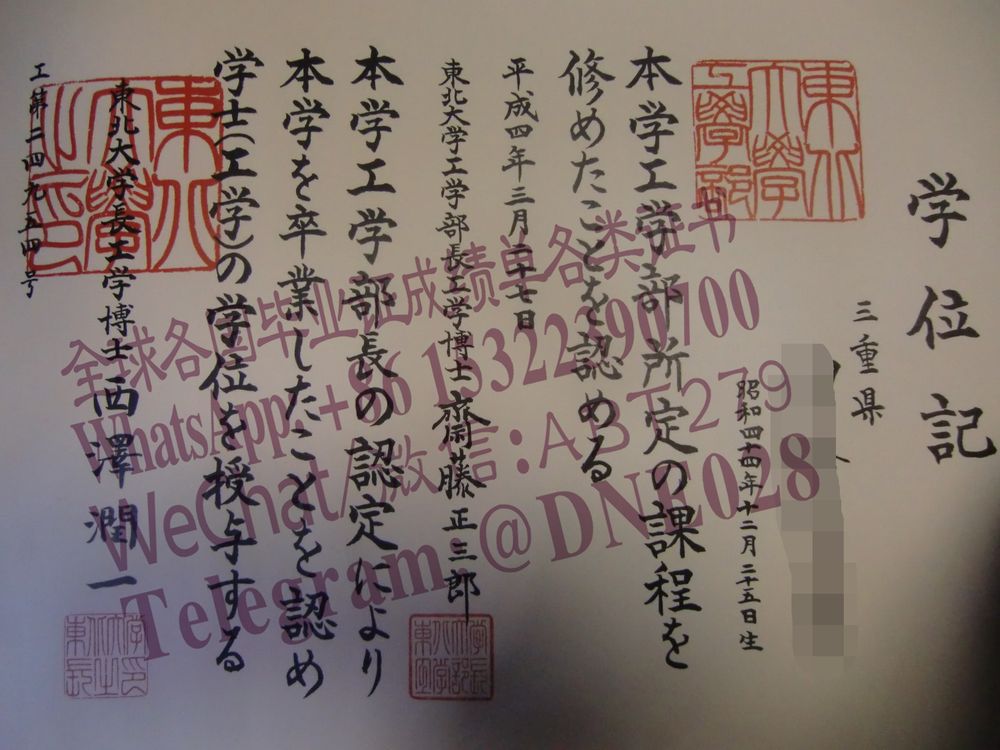 学位記
三重県
昭和四十四年十二月二十五日生
東北大學工學部
本学工学部所定の課程を
修めたことを認める
平成四年三月二十七日
東北大学工学部長工学博士齋藤正三郎
本学工学部長の認定により
本学を卒業したことを認め
学士(工学)の学位を授与する
東北大学長工学博士西澤潤一
東北大學之印
工第二四九五四号
全球各国毕业证成绩单各类证书
WhatsApp:+86
WeChat/微信:ABT279
Telegram:@DNE028